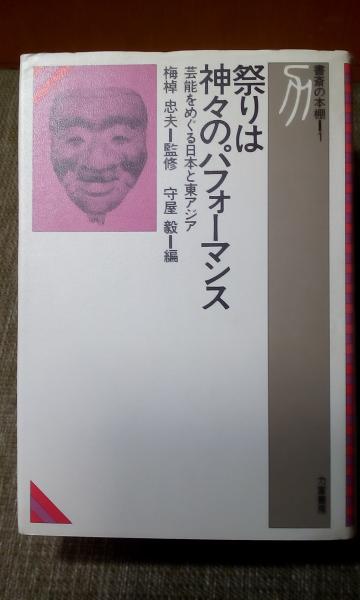 書斎の本棚—1
祭りは
神々のパフォーマンス
芸能をめぐる日本と東アジア
梅棹 忠夫—監修 守屋 毅—編
力富書房